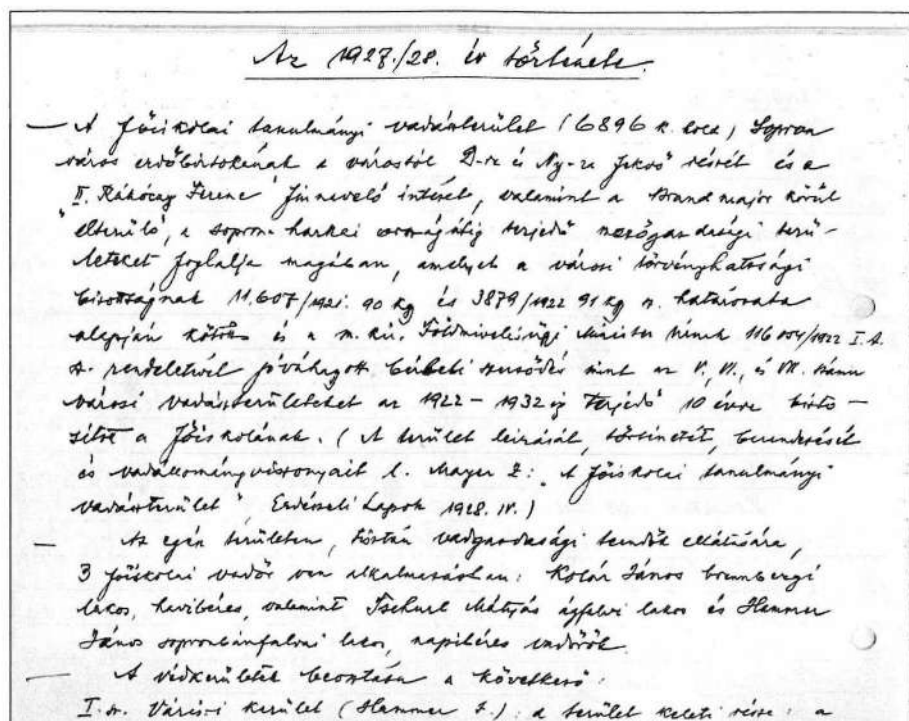 Az 1927./28. év története.
— A főiskolai tanulmányi vadászterület (6896 k. hold) Sopron
város erdőbirtokának a várostól D-re és Ny-ra fekvő részét és a
„II. Rákóczy Ferenc" finnevelő intézet, valamint a Brand major körül
elterülő, a sopron-harkai országútig terjedő mezőgazdasági terü-
leteket foglalja magában, amelyek a városi törvényhatósági
bizottságnak 11.607/1921. 90 kg és 3879/1922 91 kg sz. határozata
alapján kötött és a m. kir. Földmivelésügyi Miniszter Úrnak 116004/1922 I.A.
sz. rendeletével jóváhagyott bérleti szerződés mint az V., VI., és VII. számú
városi vadászterületeket az 1922–1932 ig terjedő 10 évre bizto-
sított a főiskolának. (A terület leirását, történetét, berendezését
és vadállományviszonyait l. Mayer Z: „A főiskolai tanulmányi
vadászterület" Erdészeti Lapok 1928. IV.)
— Az egész területen, tisztán vadgazdasági teendők ellátására,
3 főiskolai vadőr van alkalmazásban: Kolár János brennbergi
lakos, havibéres, valamint Tschurl Mátyás ágfalvi lakos és Hammer
János sopronbánfalvi lakos, napibéres vadőrök.
— A védkerületek beosztása a következő:
I. sz. Várisi kerület (Hammer J.): a terület keleti része: a